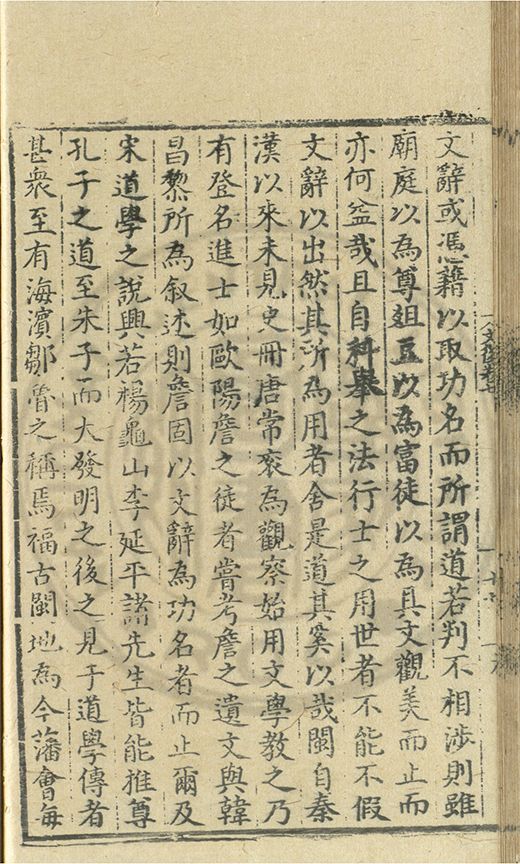 文辭或憑藉以取功名而所謂道若判不相涉則雖
廟庭以為尊俎豆以為富徒以為具文觀美而止而
亦何益哉且自科舉之法行士之用世者不能不假
文辭以出然其所為用者舍是道其奚以哉閩自秦
漢以來未見史冊唐常衮為觀察始用文學教之乃
有登名進士如歐陽詹之徒者嘗考詹之遺文與韓
昌黎所為叙述則詹固以文辭為功名者而止爾及
宋道學之說興若楊龜山李延平諸先生皆能推尊
孔子之道至朱子而大發明之後之見于道學傳者
甚衆至有海濱鄒魯之稱焉福古閩地為今藩會每